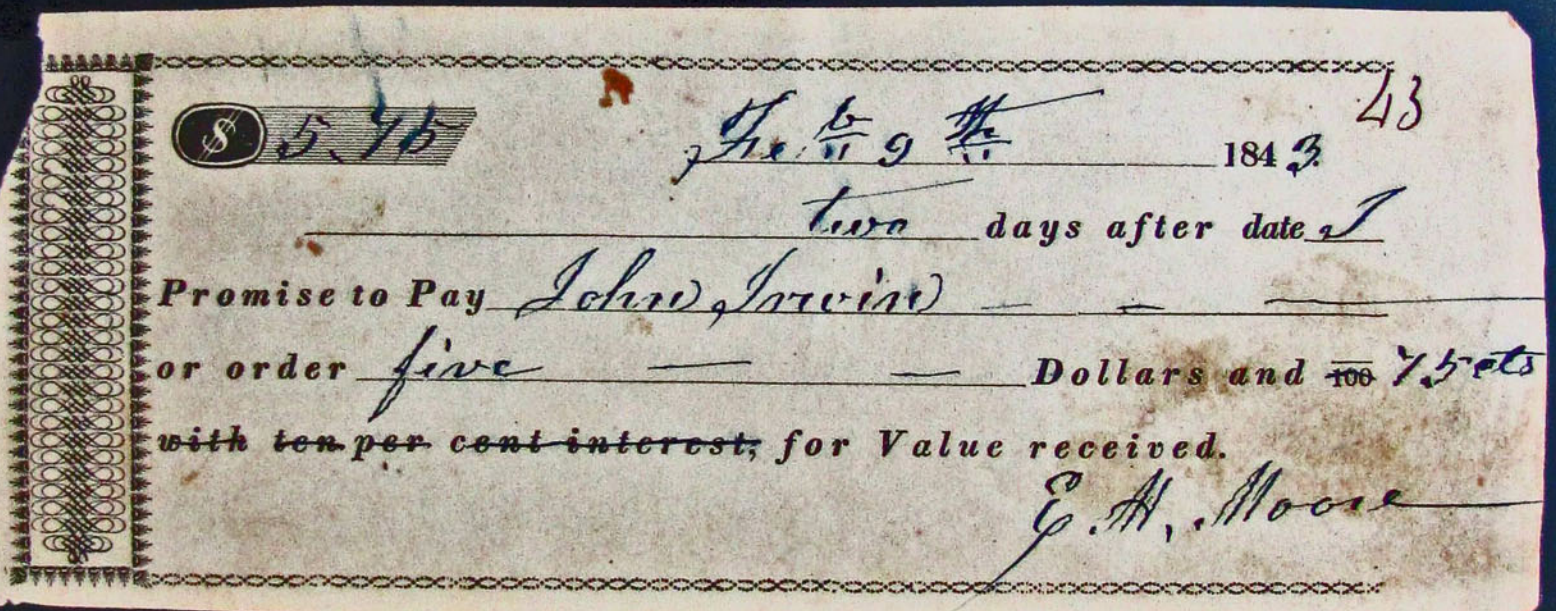 43
$ 5.75 Feb 9th 1843.
two days after date I
Promise to Pay John Irwin
or order five Dollars and 100 75 cts
with ten per cent interest, for Value received.
E. H. Moore